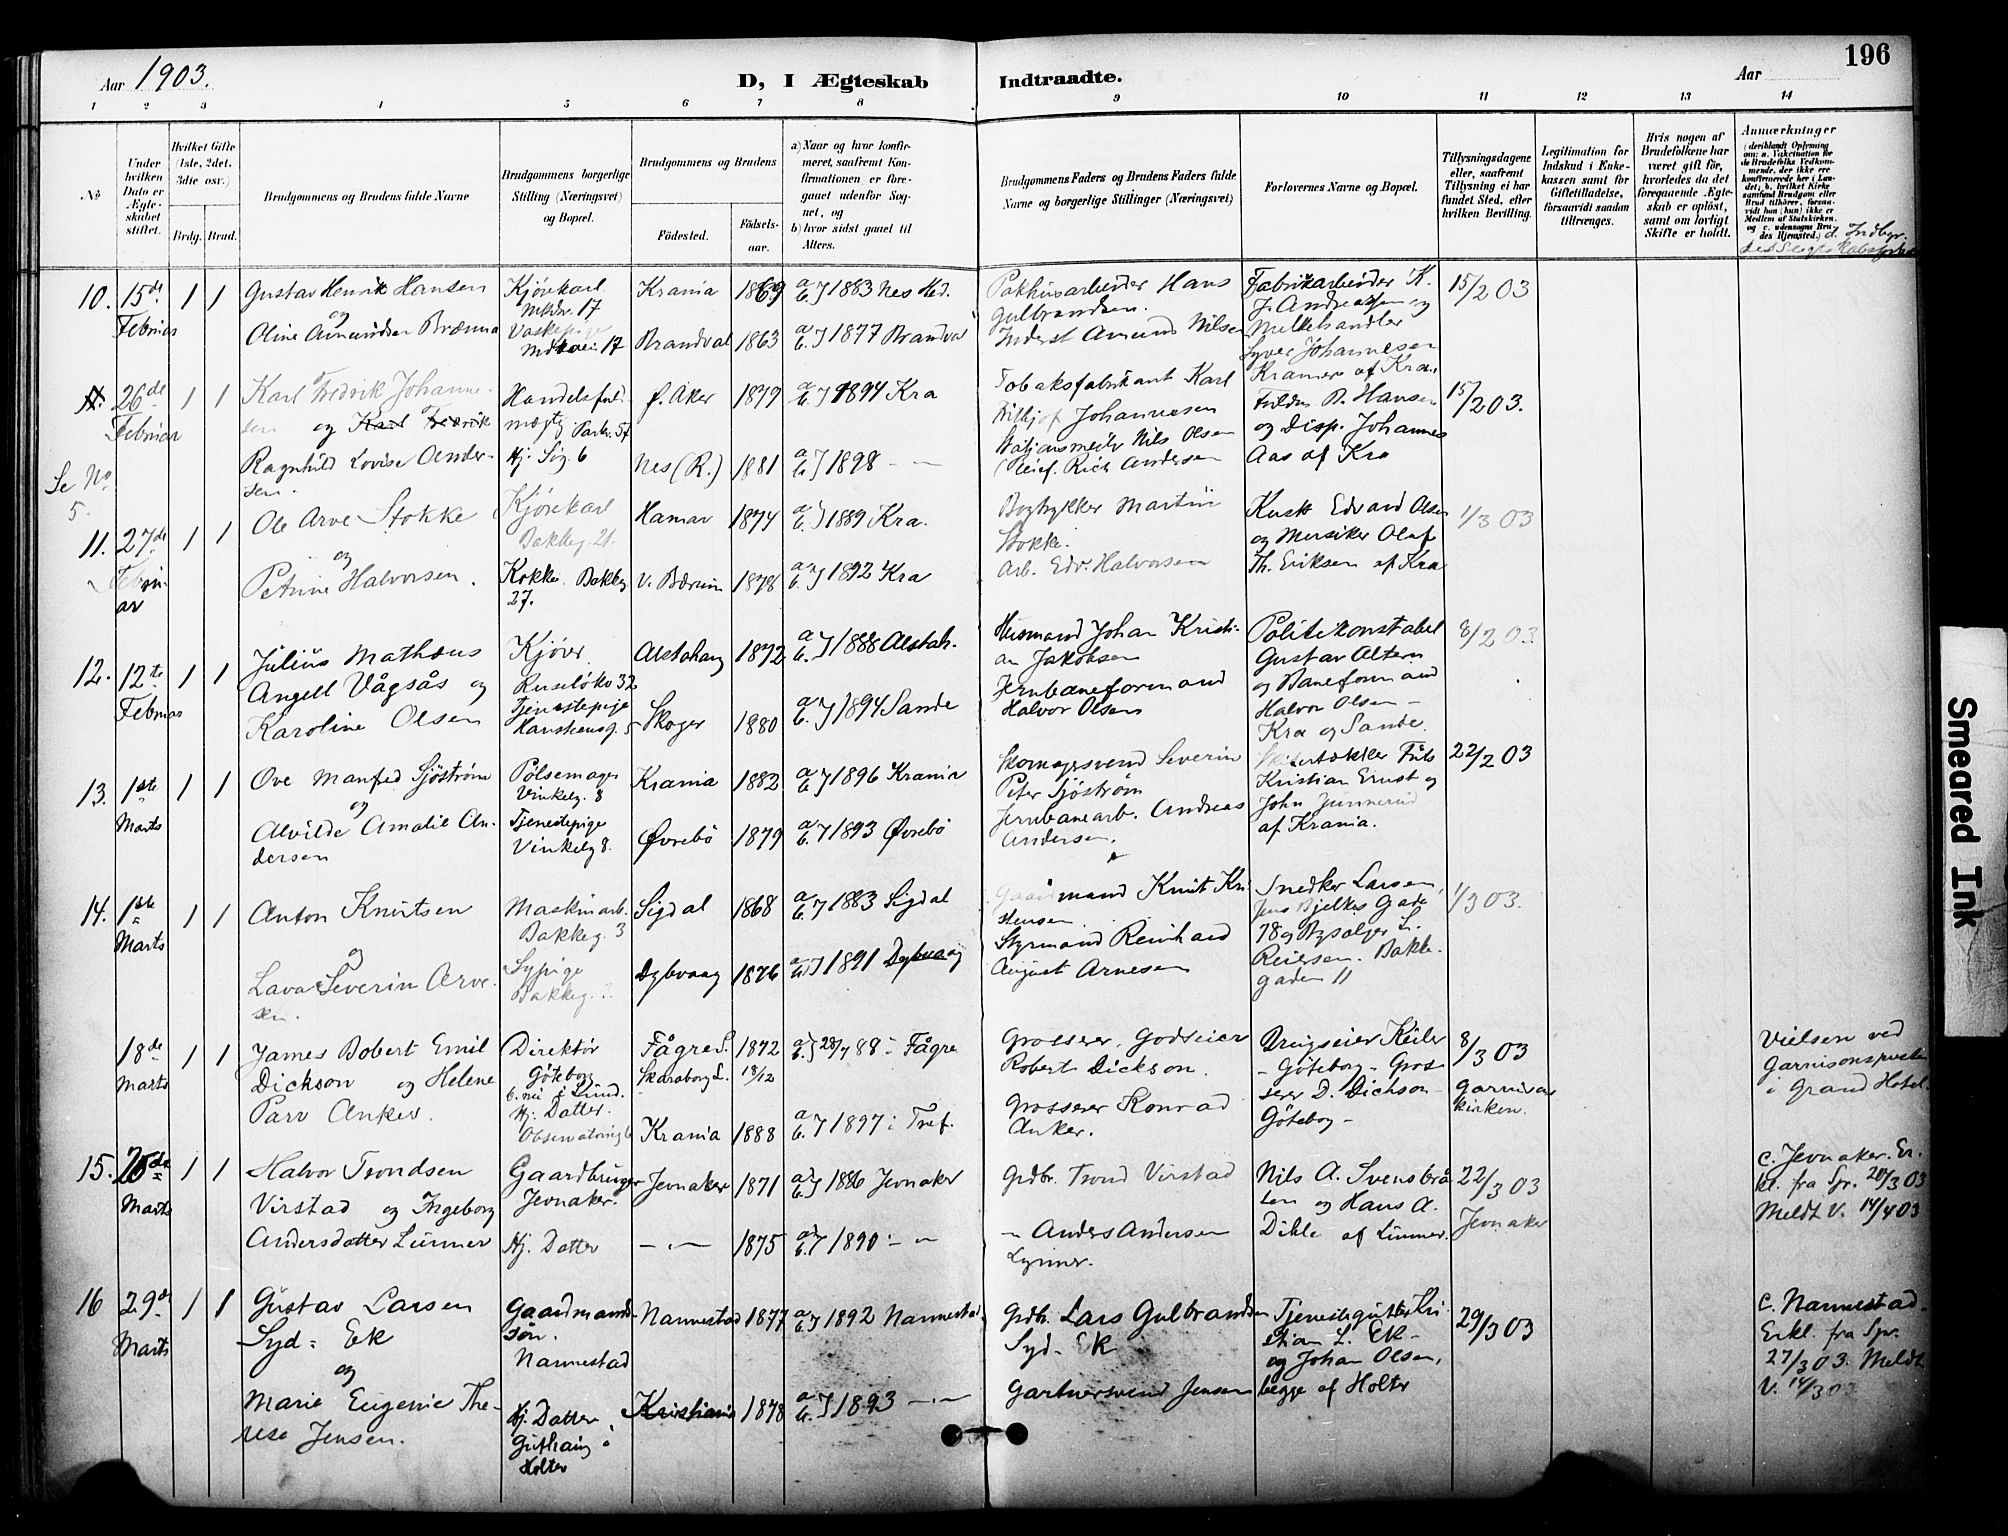 196
Aar 1903.
D, I Ægteskab Indtraadte.
Aar
1 2 3 4 5 6 7 8 9 10 11 12 13 14
No
Under hvilken Dato er Ægteskabet stiftet.
Hvilket Gifte (1ste, 2det, 3die osv.)
Brdg. Brud.
Brudgommens og Brudens fulde Navne
Brudgommens borgerlige Stilling (Næringsvei) og Bopæl.
Brudgommens og Brudens
Födested.
Födselsaar.
a) Naar og hvor konfirmeret, saafremt Konfirmationen er foregaaet udenfor Sognet, og
b) hvor sidst gaaet til Alters.
Brudgommens Faders og Brudens Faders fulde Navne og borgerlige Stillinger (Næringsvei)
Forlovernes Navne og Bopæl.
Tillysningsdagene eller, saafremt Tillysning ei har fundet Sted, efter hvilken Bevilling.
Legitimation for Indskud i Enkekassen samt for Giftetilladelse, forsaavidt saadan tiltrænges.
Hvis nogen af Brudefolkene har været gift för, hvorledes da det foregaaende Ægteskab er oplöst, samt om lovligt Skifte er holdt.
Anmærkninger (deriblandt Oplysning om: a. Vakcination for de Brudefolks Vedkommende, der ikke ere konfirmerede her i Landet; b. hvilket Kirkesamfund Brudgom eller Brud tilhörer, forsaavidt han (hun) ikke er Medlem af Statskirken, og c. udensogns Brudes Hjemsted.)
10. 15de Februar 1 1
Gustav Henrik Hansen
og
Oline Amundsen Brænna
Kjørekarl
17
Krania 1869 a b } 1883 Nes Hed.
Brandval 1863 a b } 1877 Brandval
Pakhusarbeider Hans
Gulbrandsen.
Inderst Amund Nilsen
Fabrikarbeider K.
J. Andreassen og
Melkehandler
Syver Johannesen
Kramer af Kra.
15/2 03
26de Februar 1 1
Karl Fredrik Johanne-
sen og
Ragnhild Lovise Ander-
sen.
Handelsfuld-
mægtig Parkv. 57
Hj. Sig. 6
Ø. Aker 1879 a b } 1894 Kra
Nes (R.) 1881 a b } 1898 - -
Tobaksfabrikant Karl
Frithjof Johannesen
Nils Olsen
Andersen
B. Hansen
og Disp. Johannes
Aas af Kra
15/2 03.
Se No 5.
11. 27de Februar 1 1
Ole Arve Stokke
og
Petrine Halvorsen.
Kjørekarl
Bakkeg. 21.
Kokke. Bakkeg
27.
Hamar 1874 a b } 1889 Kra.
V. Bærum 1878 a b } 1892 Kra
Bogtrykker Martin
Stokke.
Arb. Edv. Halvorsen
Kusk Edvard Olsen
og Musiker Olaf
Th. Eriksen af Kra
1/3 03
12. 12te Februar 1 1
Julius Mathæus
Angell Vågsås og
Karoline Olsen
Kjører
Ruseløkv 32
Tjenestepige
Hanstensg. 5
Alstahaug 1872 a b } 1888 Alstah.
Skoger 1880 a b } 1894 Sande
Husmand Johan Kristi-
an Jakobsen
Jernbaneformand
Halvor Olsen
Politikonstabel
Gustav Altern
og Baneformand
Halvor Olsen -
Kra og Sande.
8/2 03
13. 1ste Marts 1 1
Ove Manfred Sjöström
og
Alvilde Amalie An-
dersen
Pølsemager
Vinkelg. 8
Tjenestepige
Vinkelg 8.
Krania 1882 a b } 1896 Krania
Øvrebö 1879 a b } 1893 Øvrebö
Skomagersvend Severin
Peter Sjöström
Jernbanearb. Andreas
Andersen.
Skifertækker Frits
Kristian Ernst og
John Gunnerud
af Krania.
22/2 03
14. 1ste Marts 1 1
Anton Knutsen
og
Lava Severin Arne-
sen.
Maskinarb.
Bakkeg. 3
Sypige
Bakkeg. 3
Sigdal 1868 a b } 1883 Sigdal
Dybvaag 1876 a b } 1891 Dybvaag
Gaardmand Knut Kri-
stensen
Styrmand Reinhard
August Arnesen
Snedker Larsen,
Jens Bjelkes Gade
78 og Bysælger L.
Reiersen. Bakke-
gaden 11
1/3 03.
18de Marts 1 1
James Robert Emil
Dickson og Helene
Parr Anker.
Direktör
Göteborg
b. nu i Lund.
Hj. Datter.
Observatoriig 6
Fågre S.
Skaraborg L. 1872 18/12 a b } 28/7 88 - Fågre
Krania 1888 a b } 1897 i Tref.
Grosserer, Godseier
Robert Dickson.
Grosserer Konrad
Anker.
Brugseier Keiler
- Göteborg - Gros-
serer D. Dickson -
Göteborg -
8/3 03
Garnisons
kirken.
Vielsen ved
Garnisonspresten
i Grand Hotel.
15. 25de Marts 1 1
Halvor Trondsen
Virstad og Ingeborg
Andersdatter Lunner
Gaardbruger
Jevnaker.
Hj. Datter
Jevnaker 1871 a b } 1886 Jevnaker
- " - 1875 a b } 1890 - " -
Grdbr. Trond Virstad
- Anders Andersen
Lynner.
Nils A. Svensbrå-
ten og Hans A.
Dihle af Lunner.
22/3 03
Jevnaker
C. Jevnaker. Er-
kl. fra Spr. 20/3 03
Meldt V. 14/4 03
16 29de Marts 1 1
Gustav Larsen
Syd-Ek
og
Marie Eugenie The-
rese Jensen.
Gaardmands-
søn.
Nannestad
Hj. Datter
i
Holter
Nannestad 1877 a b } 1892 Nannestad
Kristiania 1878 a b } 1893 - " -
Grdbr. Lars Gulbrandsen
Syd-Ek
Gartnersvend Jensen
Tjenestegutter Kri-
stian L. Ek -
og Johan Olsen,
begge af Holter
29/3 03
C. Nannestad.
Erkl. fra Spr.
27/3 03. Meldt
V. 14/3 03
Smeared Ink